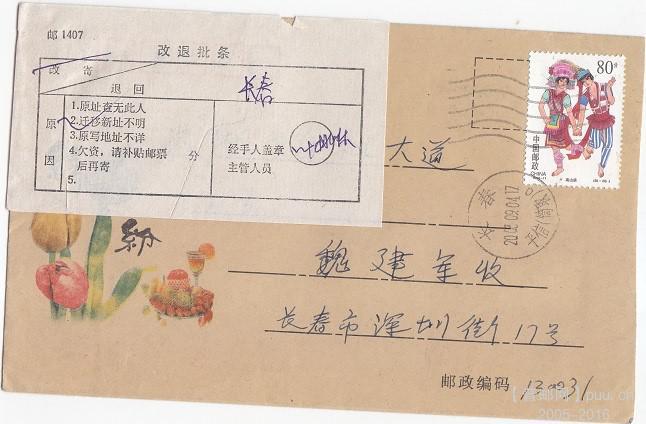 邮1407
改退批条
改 寄
退 回
长春
原因
1.原址查无此人
2.迁移新址不明
3.原写地址不详
4.欠资，请补贴邮票 分
后再寄
5.
经手人盖章
主管人员
80分
中国邮政
CHINA
大道
长春
2015.09.04.17
魏建军收
长春市深圳街17号
邮政编码 130031
puu.cn
2005-2016